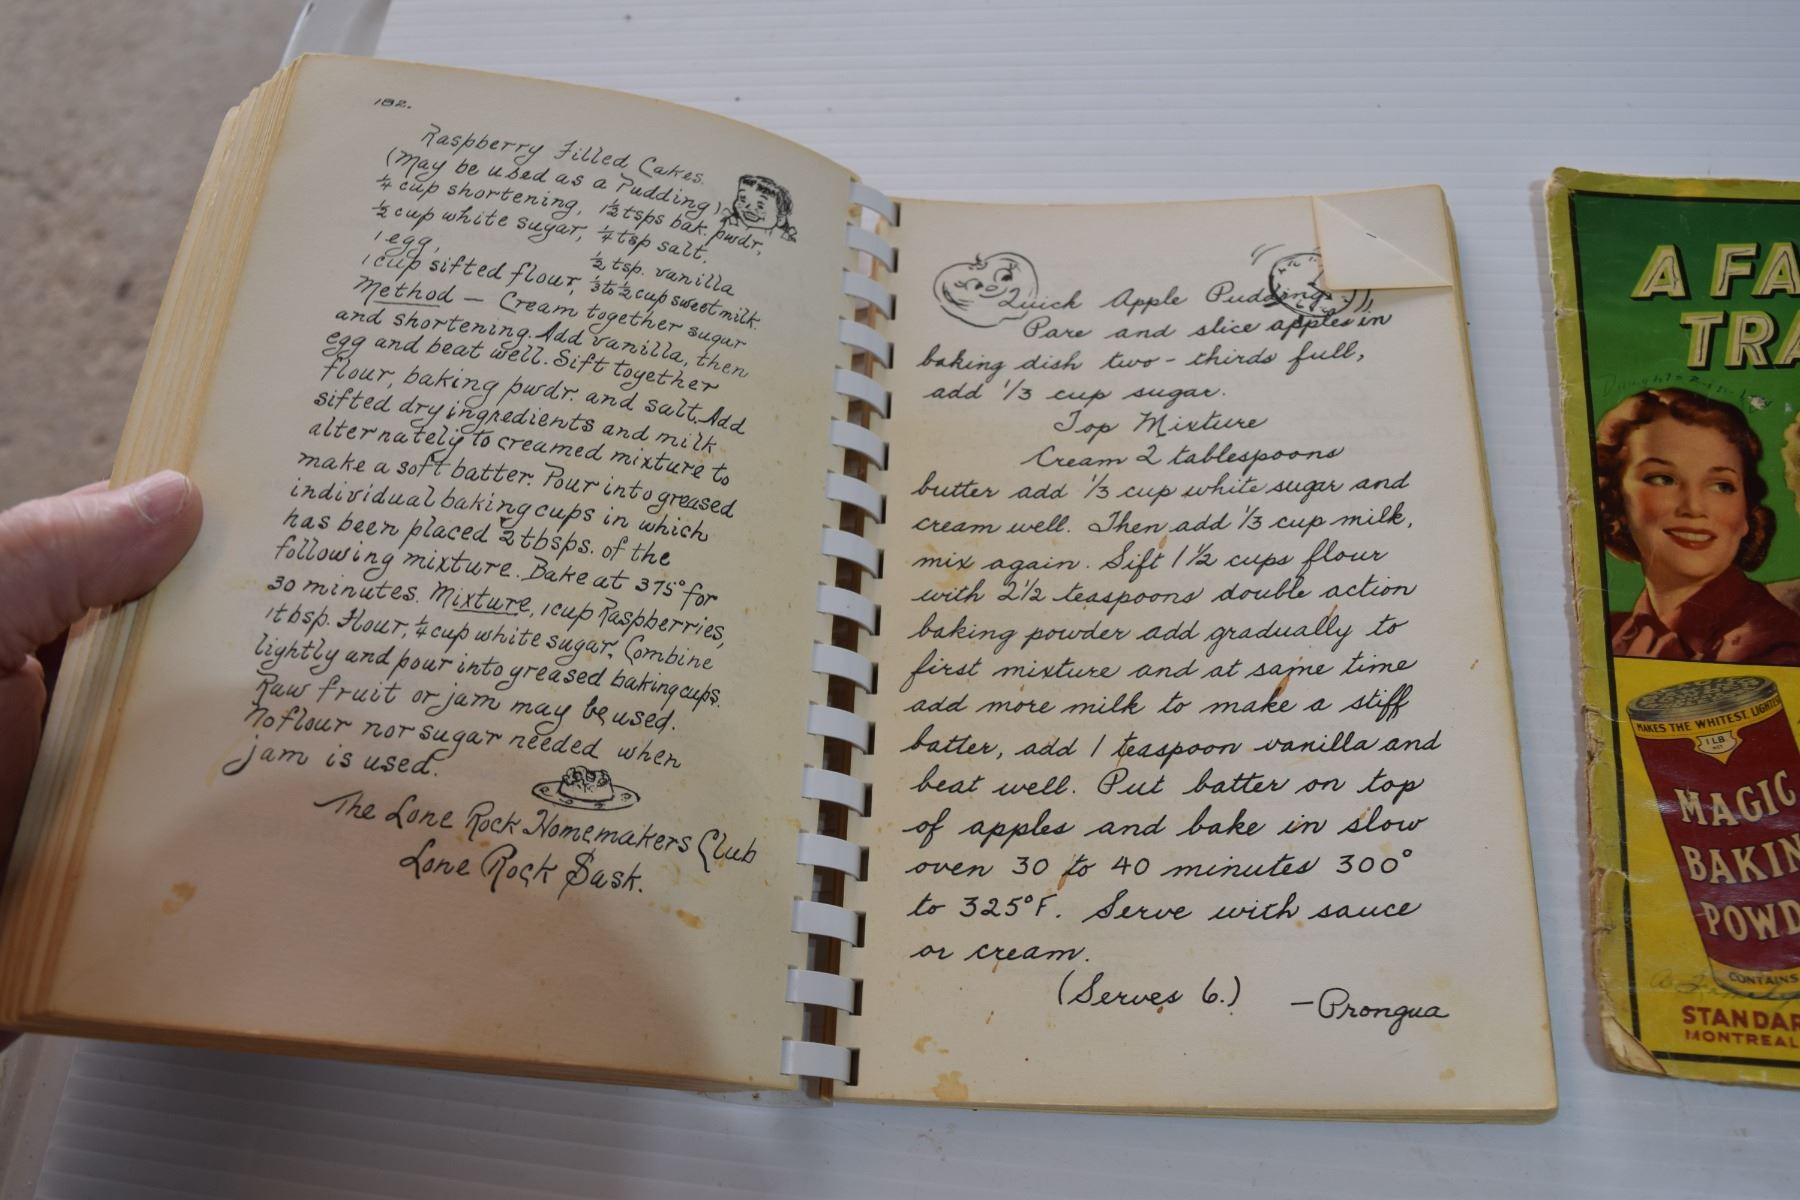 182.
Raspberry Filled Cakes.
(May be used as a Pudding)
1/4 cup shortening, 1 1/2 tsps bak. pwdr,
1/2 cup white sugar, 1/4 tsp salt.
1 egg, 1/2 tsp. vanilla
1 cup sifted flour, 1/3 to 1/2 cup sweet milk.
Method — Cream together sugar
and shortening. Add vanilla, then
egg and beat well. Sift together
flour, baking pwdr. and salt. Add
sifted dry ingredients and milk
alternately to creamed mixture to
make a soft batter. Pour into greased
individual baking cups in which
has been placed 2 tbsps. of the
following mixture. Bake at 375° for
30 minutes. Mixture, 1 cup Raspberries,
1 tbsp. Flour, 1/4 cup white sugar. Combine
lightly and pour into greased baking cups.
Raw fruit or jam may be used.
No flour nor sugar needed when
jam is used.
The Lone Rock Homemakers Club
Lone Rock Sask.
Quick Apple Pudding
Pare and slice apples in
baking dish two-thirds full,
add 1/3 cup sugar.
Top Mixture
Cream 2 tablespoons
butter add 1/3 cup white sugar and
cream well. Then add 1/3 cup milk,
mix again. Sift 1 1/2 cups flour
with 2 1/2 teaspoons double action
baking powder add gradually to
first mixture and at same time
add more milk to make a stiff
batter, add 1 teaspoon vanilla and
beat well. Put batter on top
of apples and bake in slow
oven 30 to 40 minutes 300°
to 325°F. Serve with sauce
or cream.
(Serves 6.) —Prongua
A FA
TRA
MAKES THE WHITEST, LIGHTES
1 LB
NET
MAGIC
BAKIN
POWD
CONTAINS
STANDAR
MONTREAL